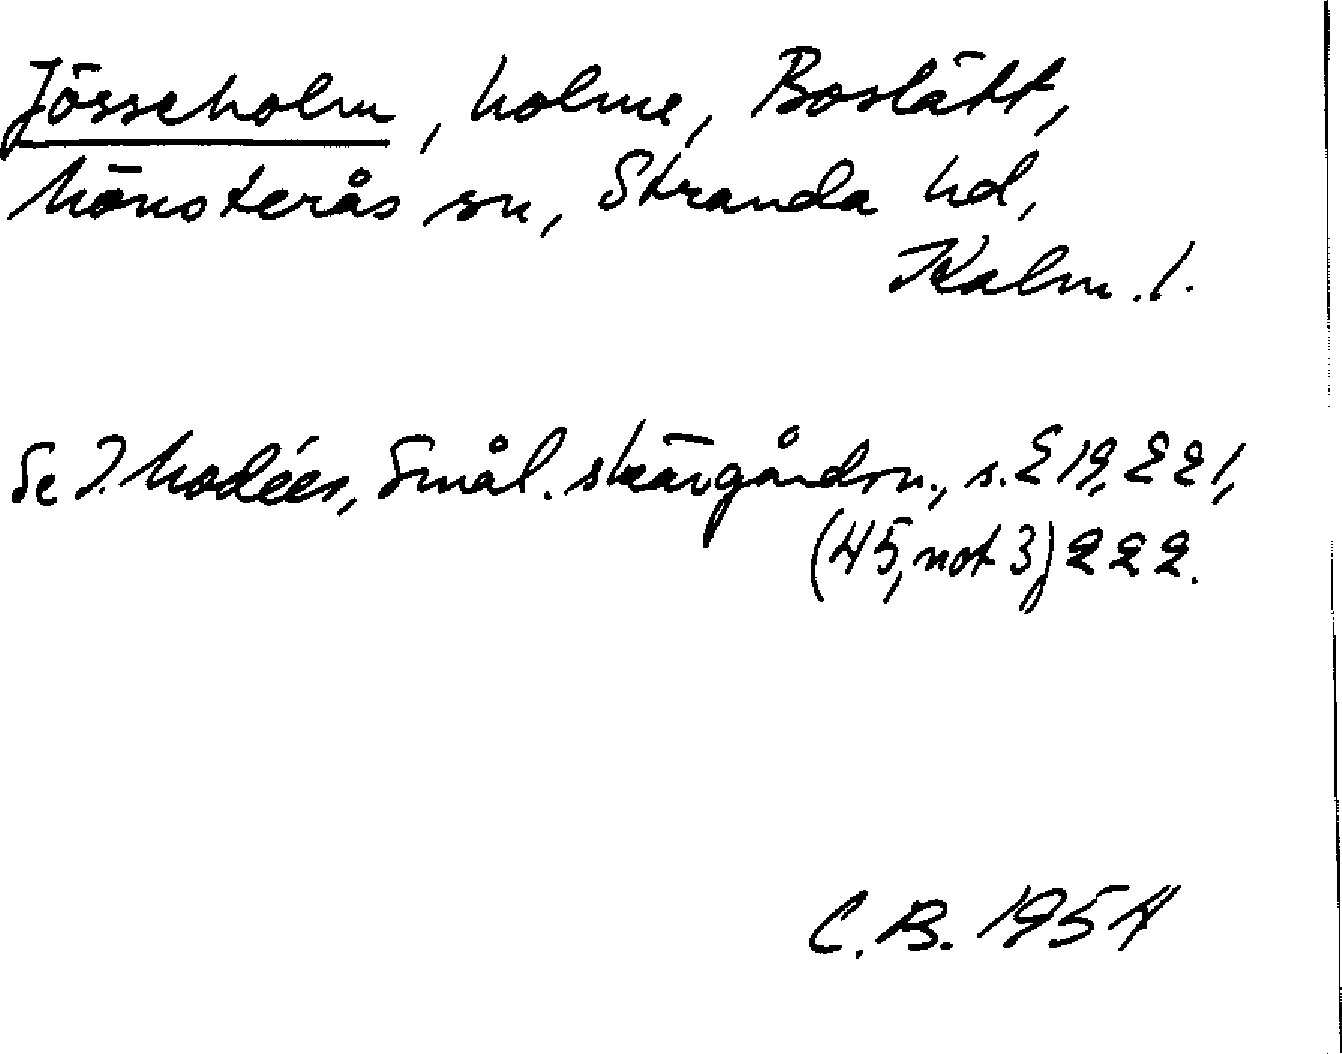 Jösseholm, holme, Boslätt,
Mönsterås sn, Stranda hd,
Kalm. l.
Se I. Modéer, Smål. skärgårdsn., s. 219, 221,
(45, not 3) 222.
C. B. 1954